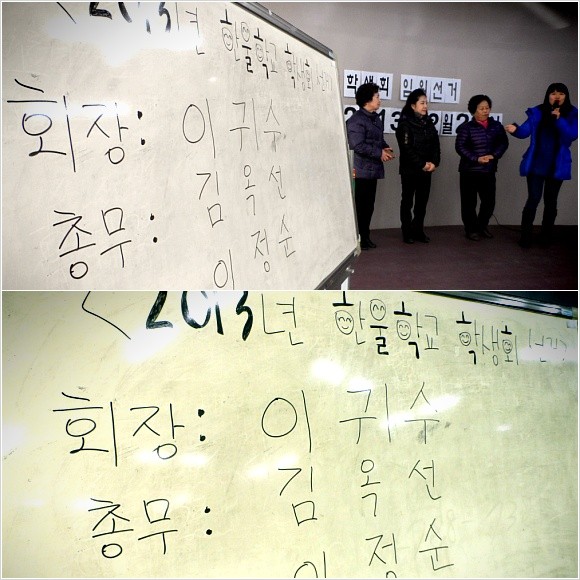 <2013년 한울학교 학생회 선거
회장: 이귀수
김옥선
총무: 이정순
학생회 임원선거
<2013년 한울학교 학생회 선거
회장: 이귀수
김옥선
총무: 이정순